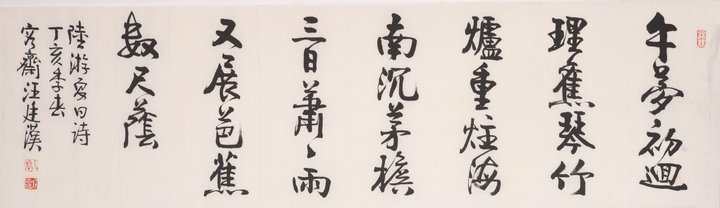 午夢初迴
理舊琴竹
爐重炷海
南沉茅檐
三日蕭〻雨
又展芭蕉
數尺蔭
陸游夏日诗
丁亥季春
容齋汪建漢